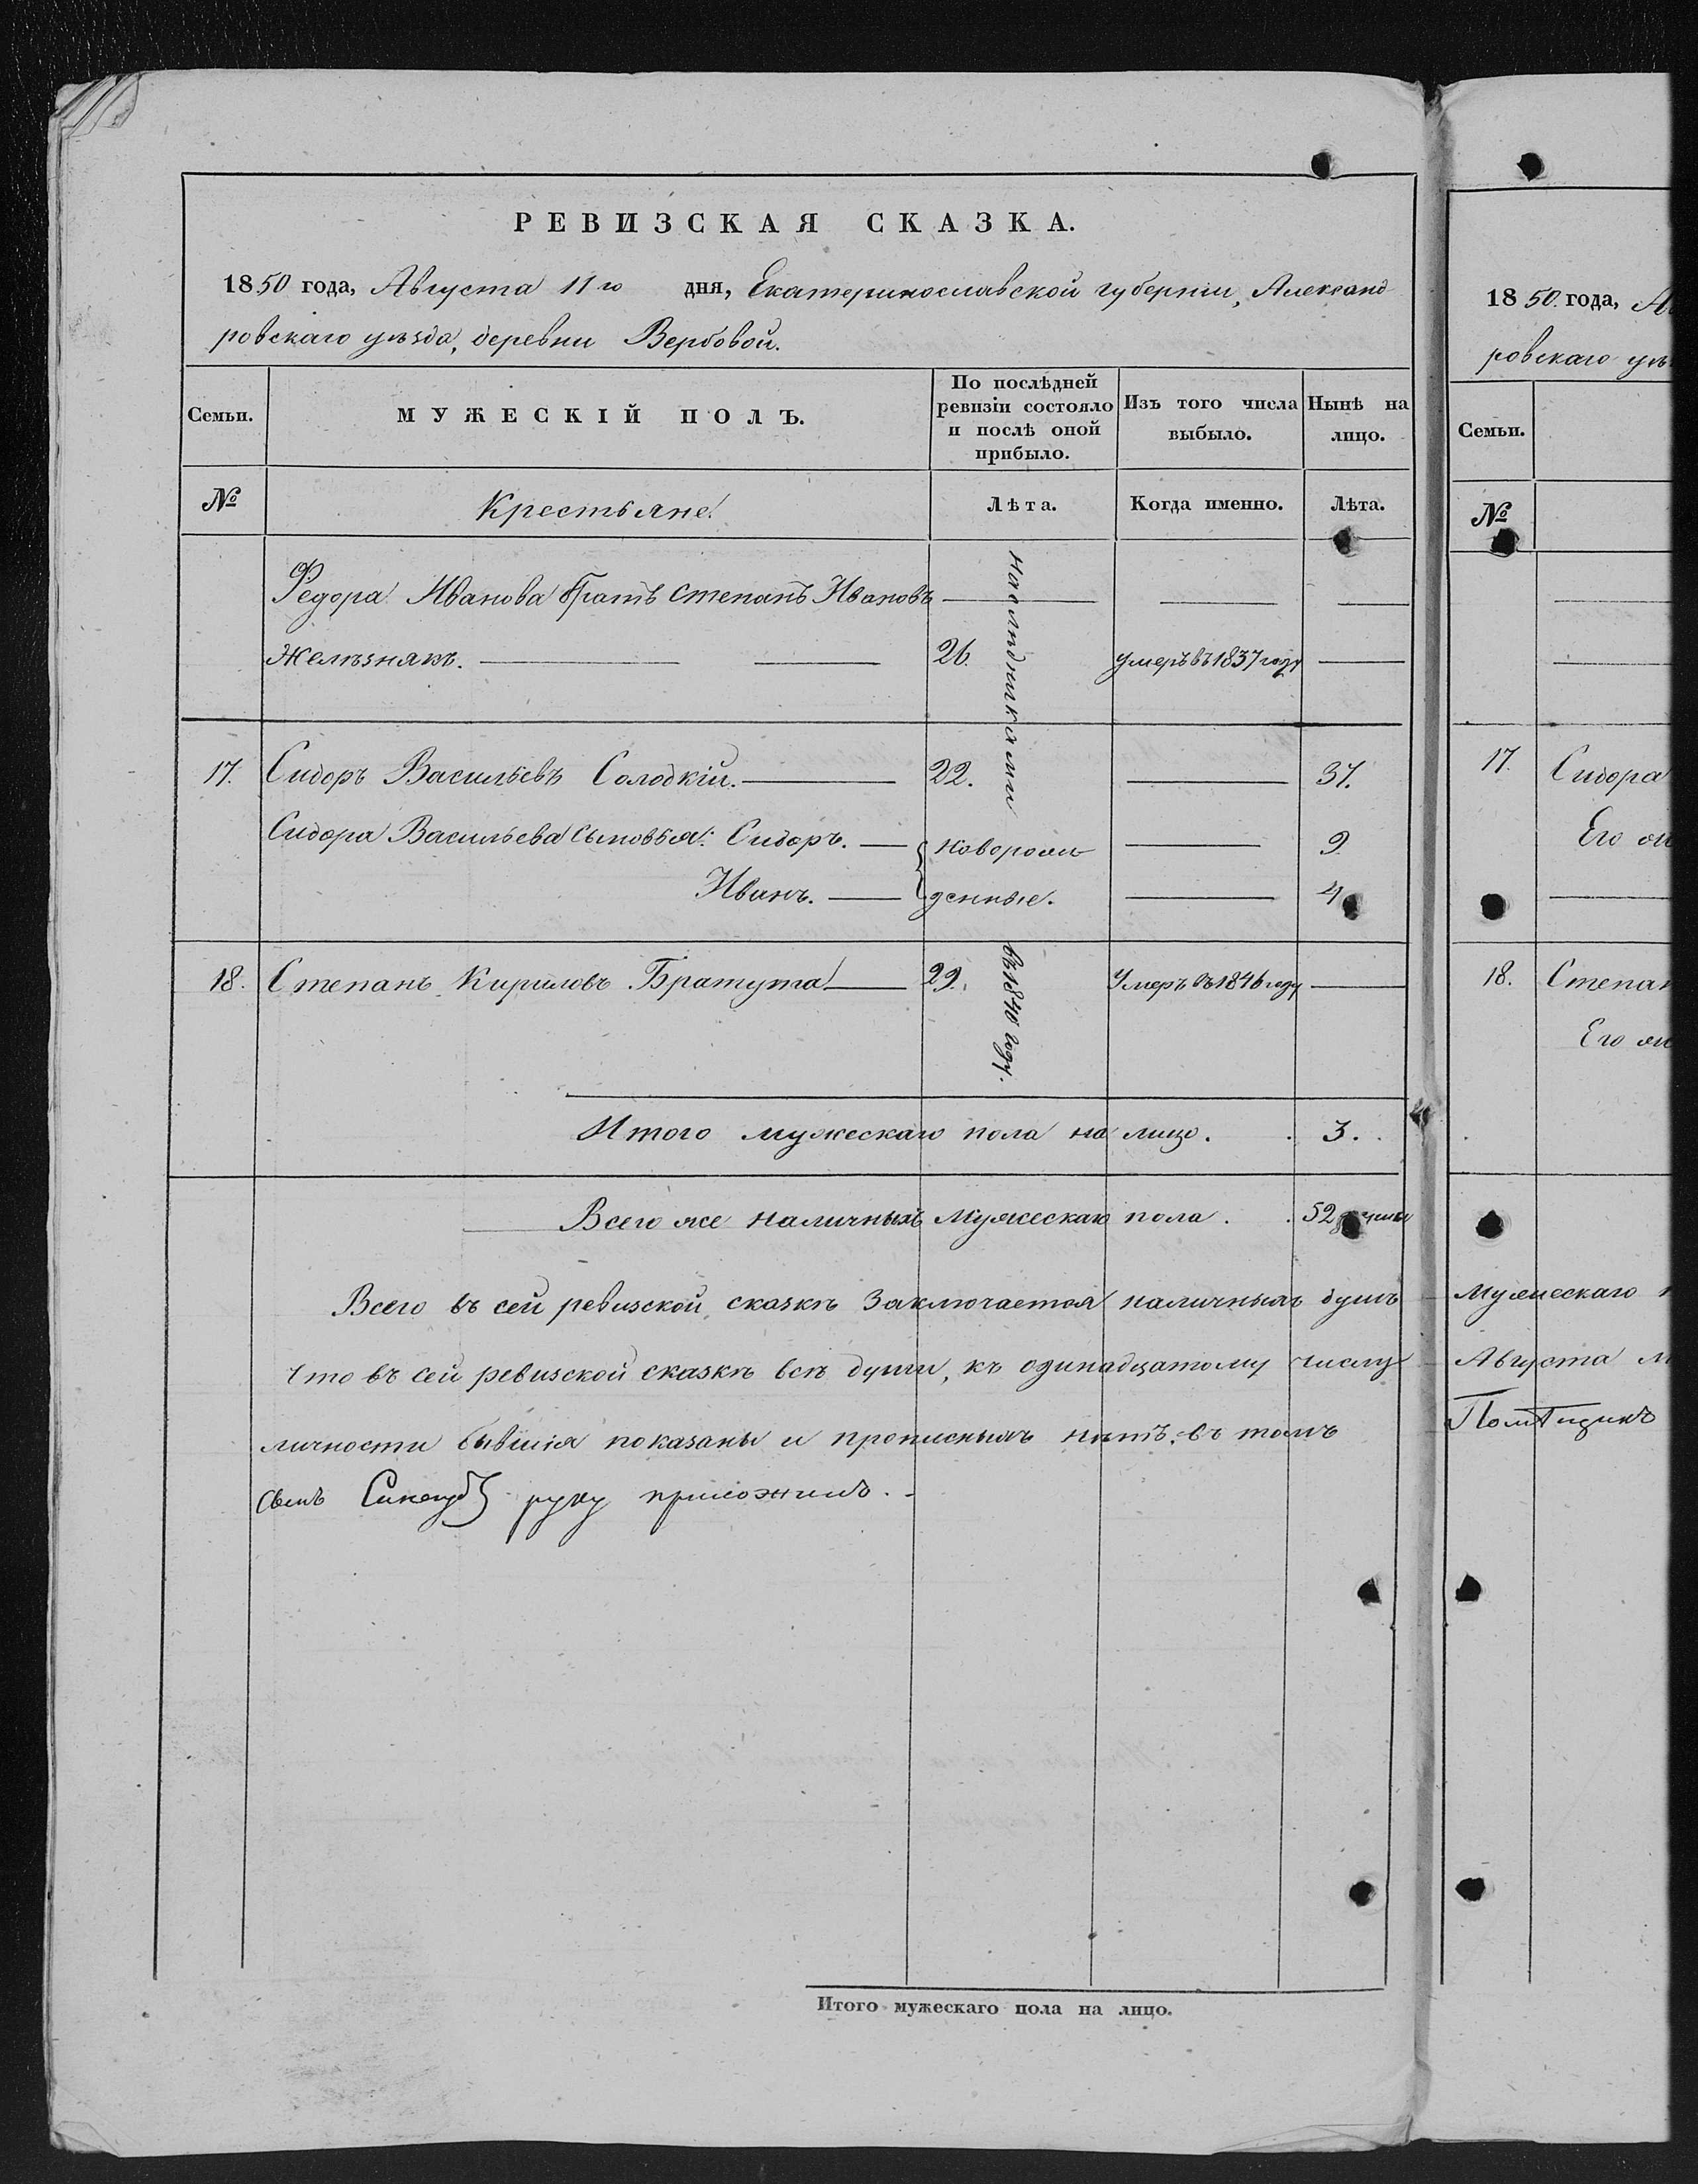 РЕВИЗСКАЯ СКАЗКА.
1850 года, Августа 11го дня, Екатеринославской губерніи, Александ
ровскаго уѣзда, деревни Вербовой.
Семьи.
МУЖЕСКІЙ ПОЛЪ.
По послѣдней ревизіи состояло и послѣ оной прибыло.
Изъ того числа выбыло.
Нынѣ на лицо.
№
Крестьяне.
Лѣта.
Когда именно.
Лѣта.
Федора Иванова братъ Степанъ Ивановъ
Желѣзнякъ. 26. умеръ въ 1837 году
17. Сидоръ Васильевъ Солодкій. 22. 37.
Сидора Васильева сыновья: Сидоръ. новорож 9
Иванъ. денные. 4
18. Степанъ Кириловъ Братута 29. Умеръ въ 1846 году
наслѣдниками
въ 1840 году.
Итого мужескаго пола на лицо. 3.
Всего же наличныхъ мужескаго пола. 52
Всего въ сей ревизской сказкѣ заключается наличныхъ душъ
что въ сей ревизской сказкѣ всѣ души, къ одинадцатому числу
личности бывшія показаны и прописныхъ нѣтъ; въ томъ
руку приложилъ.
Итого мужескаго пола на лицо.
1850 года, А
ровскаго уѣ
Семьи.
№
17. Сидора
Его
18. Степан
Его
Мужескаго
Августа